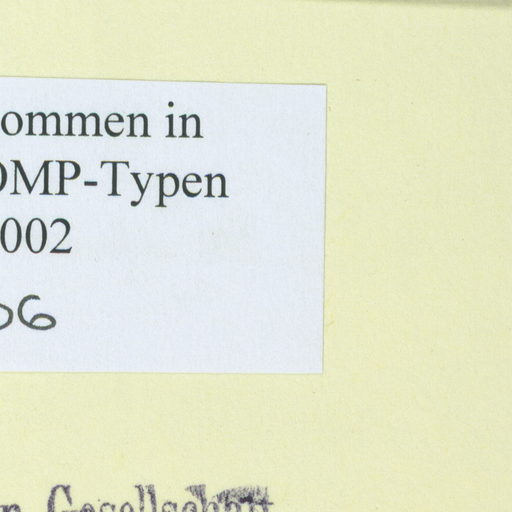 ommen in
OMP-Typen
002
06
n Gesellschaft